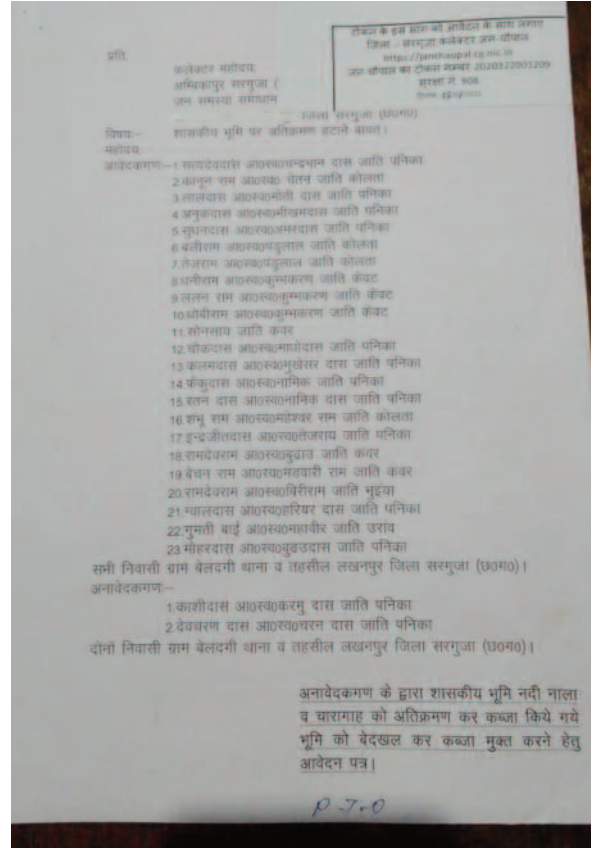 टोकन के इस भाग को आवेदन के साथ लगाएं
जिला - सरगुजा कलेक्टर जन-चौपाल
https://janchaupal.cg.nic.in
जन-चौपाल का टोकन नम्बर 2020322001209
सरगुजा नं. 908
प्रति,
कलेक्टर महोदय,
अम्बिकापुर सरगुजा (
जन समस्या समाधान
जिला सरगुजा (छ0ग0)
विषयः– शासकीय भूमि पर अतिक्रमण हटाने बावत्।
महोदय,
आवेदकगणः–1.सत्यदेवदास आ0स्व0चन्द्रभान दास जाति पनिका
2.कानून राम आ0स्व0 चेतन जाति कोलता
3.लालदास आ0स्व0मोती दास जाति पनिका
4.अनुकदास आ0स्व0भीखमदास जाति पनिका
5.सुधनदास आ0स्व0अमरदास जाति पनिका
6.बलीराम आ0स्व0पडुलाल जाति कोलता
7.तेजराम आ0स्व0पडुलाल जाति कोलता
8.धनीराम आ0स्व0कुम्भकरण जाति केंवट
9.ललन राम आ0स्व0कुम्भकरण जाति केंवट
10.धोबीराम आ0स्व0कुम्भकरण जाति केंवट
11.सोनसाय जाति कवर
12.चौकदास आ0स्व0माधोदास जाति पनिका
13.कलमदास आ0स्व0मुखेसर दास जाति पनिका
14.फेंकुदास आ0स्व0नामिक जाति पनिका
15.रतन दास आ0स्व0नामिक दास जाति पनिका
16.शंभू राम आ0स्व0महेश्वर राम जाति कोलता
17.इन्द्रजीतदास आ0स्व0तेजराय जाति पनिका
18.रामदेवराम आ0स्व0बुढाउ जाति कवर
19.बेचन राम आ0स्व0मडवारी राम जाति कवर
20.रामदेवराम आ0स्व0बिरीराम जाति भुइया
21.ग्वालदास आ0स्व0हरियर दास जाति पनिका
22.गुमती बाई आ0स्व0महावीर जाति उरांव
23.मोहरदास आ0स्व0बुढउदास जाति पनिका
सभी निवासी ग्राम बेलदगी थाना व तहसील लखनपुर जिला सरगुजा (छ0ग0)।
अनावेदकगणः–
1.काशीदास आ0स्व0करमु दास जाति पनिका
2.देवचरण दास आ0स्व0चरन दास जाति पनिका
दोंनों निवासी ग्राम बेलदगी थाना व तहसील लखनपुर जिला सरगुजा (छ0ग0)।
अनावेदकगण के द्वारा शासकीय भूमि नदी नाला
व चारागाह को अतिक्रमण कर कब्जा किये गये
भूमि को बेदखल कर कब्जा मुक्त करने हेतु
आवेदन पत्र।
P.T.O